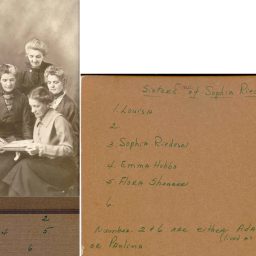 2
4 5
6
Sisters of Sophia
1. Louisa
2
3 Sophia Riedesel
4 Emma Hobbs
5 Flora
6
Number 2 + 6 are either Ada
or Paulina